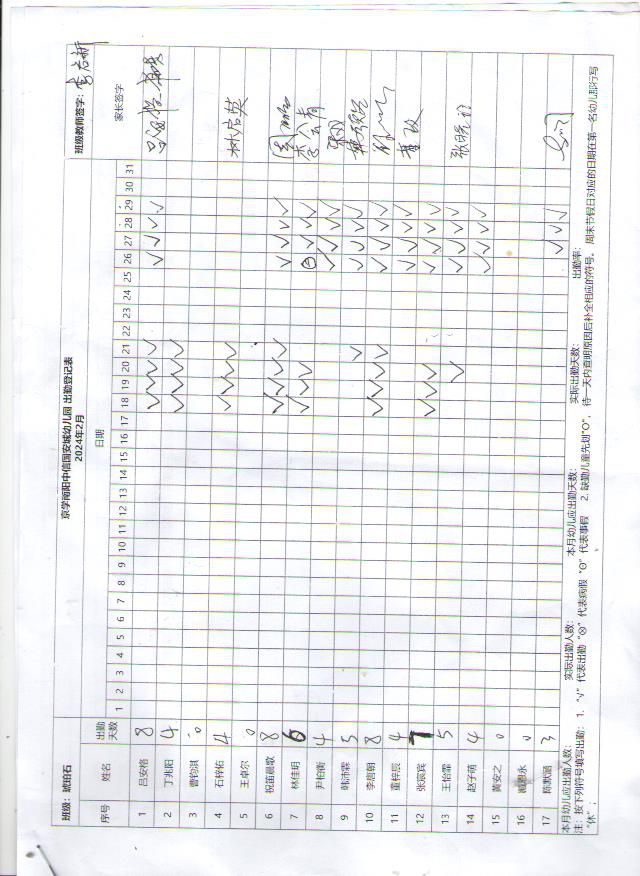 京学南阳中信国安城幼儿园 出勤登记表
2024年2月
班级：琥珀石
班级教师签字：
序号 姓名 出勤天数 日期 家长签字
1 2 3 4 5 6 7 8 9 10 11 12 13 14 15 16 17 18 19 20 21 22 23 24 25 26 27 28 29 30 31
1 吕安格 8 √ √ √ √ √ √ √
2 丁兆阳 4 √ √ √ √
3 曹钧淇 0
4 石梓佑 4 √ √ √ √
5 王卓尔 0
6 祝笛晨歌 8 √ √ √ √ √ √ √ √
7 林佳玥 6 √ √ √ ⊖ √ √ √
8 尹柏衡 4 √ √ √ √
9 韩沛霖 5 √ √ √ √ √
10 李唐朝 8 √ √ √ √ √ √ √ √
11 董梓辰 4 √ √ √ √
12 张宸宾 7 √ √ √ √ √ √ √
13 王怡霏 5 √ √ √ √ √
14 赵子萌 4 √ √ √ √
15 黄安之 0
16 臧恩永 0
17 陈默涵 3 √ √ √
本月幼儿应出勤人数： 实际出勤人数： 本月幼儿应出勤天数： 实际出勤天数： 出勤率：
注：按下列符号填写出勤：1、"√" 代表出勤 "⊗" 代表病假 "Θ" 代表事假 2. 缺勤儿童先划"O"，待一天内查明原因后补全相应的符号。 周末节假日对应的日期在第一名幼儿那行写
"休"；